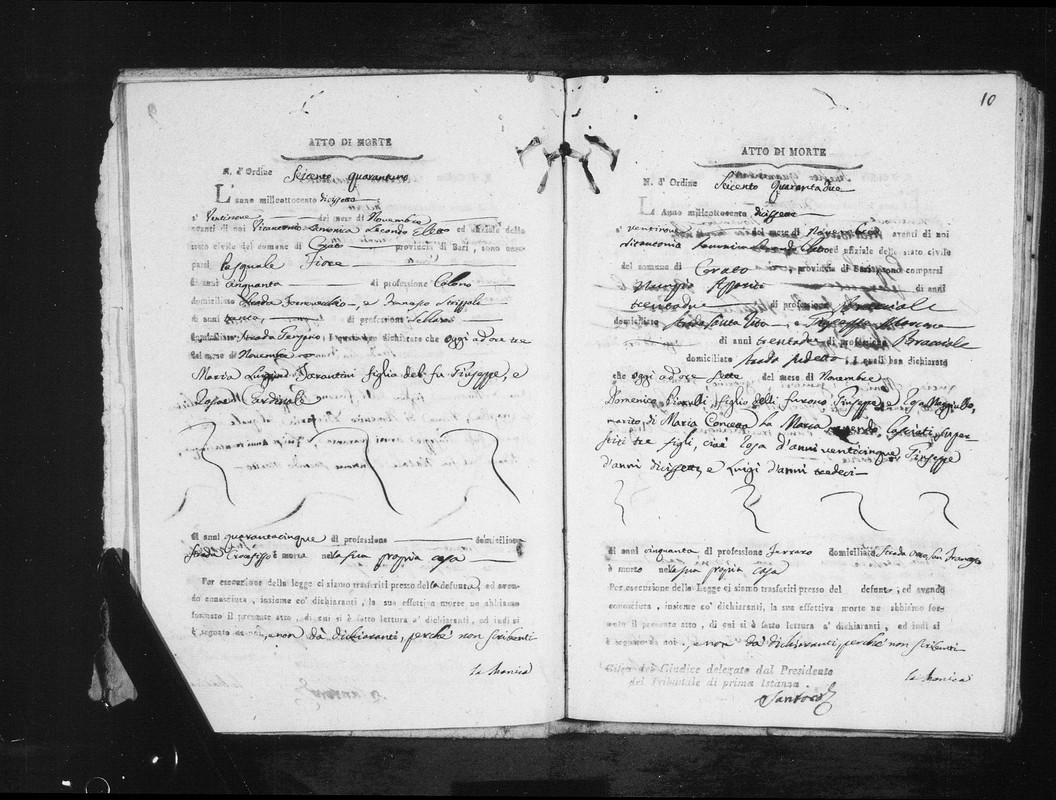 ATTO DI MORTE
N. d'Ordine Seicento quarantuno
L'anno millottocento diciſsette
a' Ventinove del mese di Novembre
avanti di noi Vitantonio Lamonica Secondo Eletto ed ufficiale dello
stato civile del comune di Corato provincia di Bari, sono com-
parsi Pasquale Fiore
di anni cinquanta di professione Colono
domiciliato Strada, e
di anni trenta, di professione
domiciliato Strada, I quali han dichiarato che oggi ad ore tre
del mese di Novembre
Maria Tarantini figlia del fu Giuseppe, e
Rosa Cardinale
di anni quarantacinque di professione domiciliata
Strada Crocefisso è morta nella sua propria casa
Per esecuzione della legge ci siamo trasferiti presso della defunta, ed aven-
do conosciuta, insieme co' dichiaranti, la sua effettiva morte ne abbiamo
formato il presente atto, di cui si è fatto lettura a' dichiaranti, ed indi si
è segnato da noi, e non da dichiaranti, perchè non scribenti
la Monica
10
ATTO DI MORTE
N. d'Ordine Seicento Quarantadue
L' Anno millottocento diciſsette
a' ventinove del mese di Novembre avanti di noi
Vitantonio Lamonica Secondo Eletto ed ufiziale dello stato civile
del comune di Corato provincia di Bari, sono comparsi
di anni
trentadue di professione Bracciale
domiciliato Strada Santa Vita, e Giuseppe
di anni trenta di professione Bracciale
domiciliato Strada sudetta; I quali han dichiarato
che oggi ad ore sette del mese di Novembre
Domenico figlio delli furono Giuseppe, e Rosa
marito di Maria Concetta La Maria lasciati super-
stiti tre figli, cioè Rosa d'anni venticinque, Giuseppe
d'anni diciſsette, e Luigi d'anni tredeci
di anni cinquanta di professione Ferraro domiciliato Strada San
è morto nella sua propria casa
Per esecuzione della Legge ci siamo trasferiti presso del defunto, ed avendo
conosciuta, insieme co' dichiaranti, la sua effettiva morte ne abbiamo for-
mato il presente atto, di cui si è fatto lettura a' dichiaranti, ed indi si
è segnato da noi, e non da dichiaranti, perchè non scribenti
la Monica
Giudice delegato dal Presidente
del Tribunale di prima Istanza
Santoro